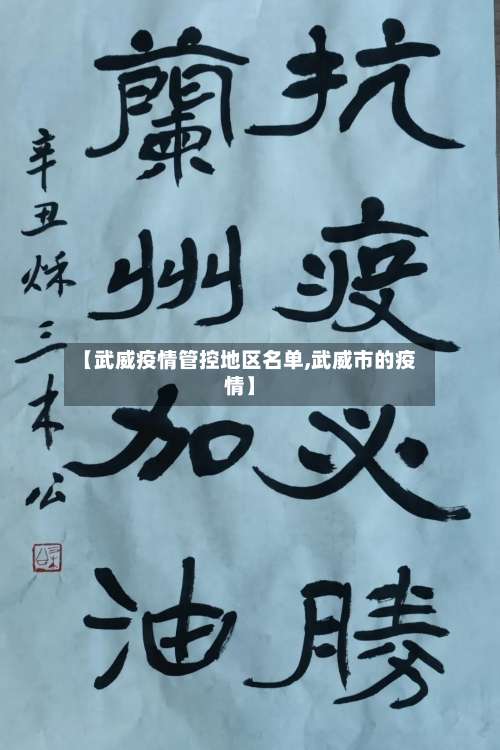 抗疫必勝
蘭州加油
辛丑秌三木公
【武威疫情管控地区名单,武威市的疫
情】